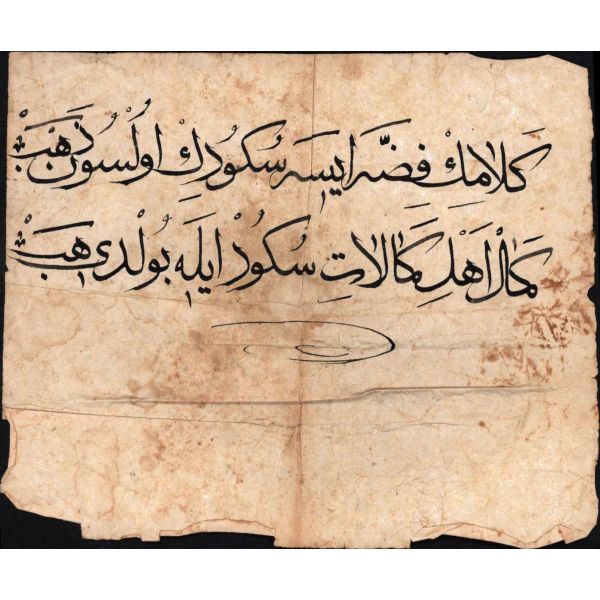 كَلامِكْ فِضَّه ايسَه سُكوُدِكْ اوُلْسوُنْ ذَهَبْ
كَمالْ اَهْلِ كَمالاتِ سُكوُدْ ايلَه بوُلْدى هَبْ